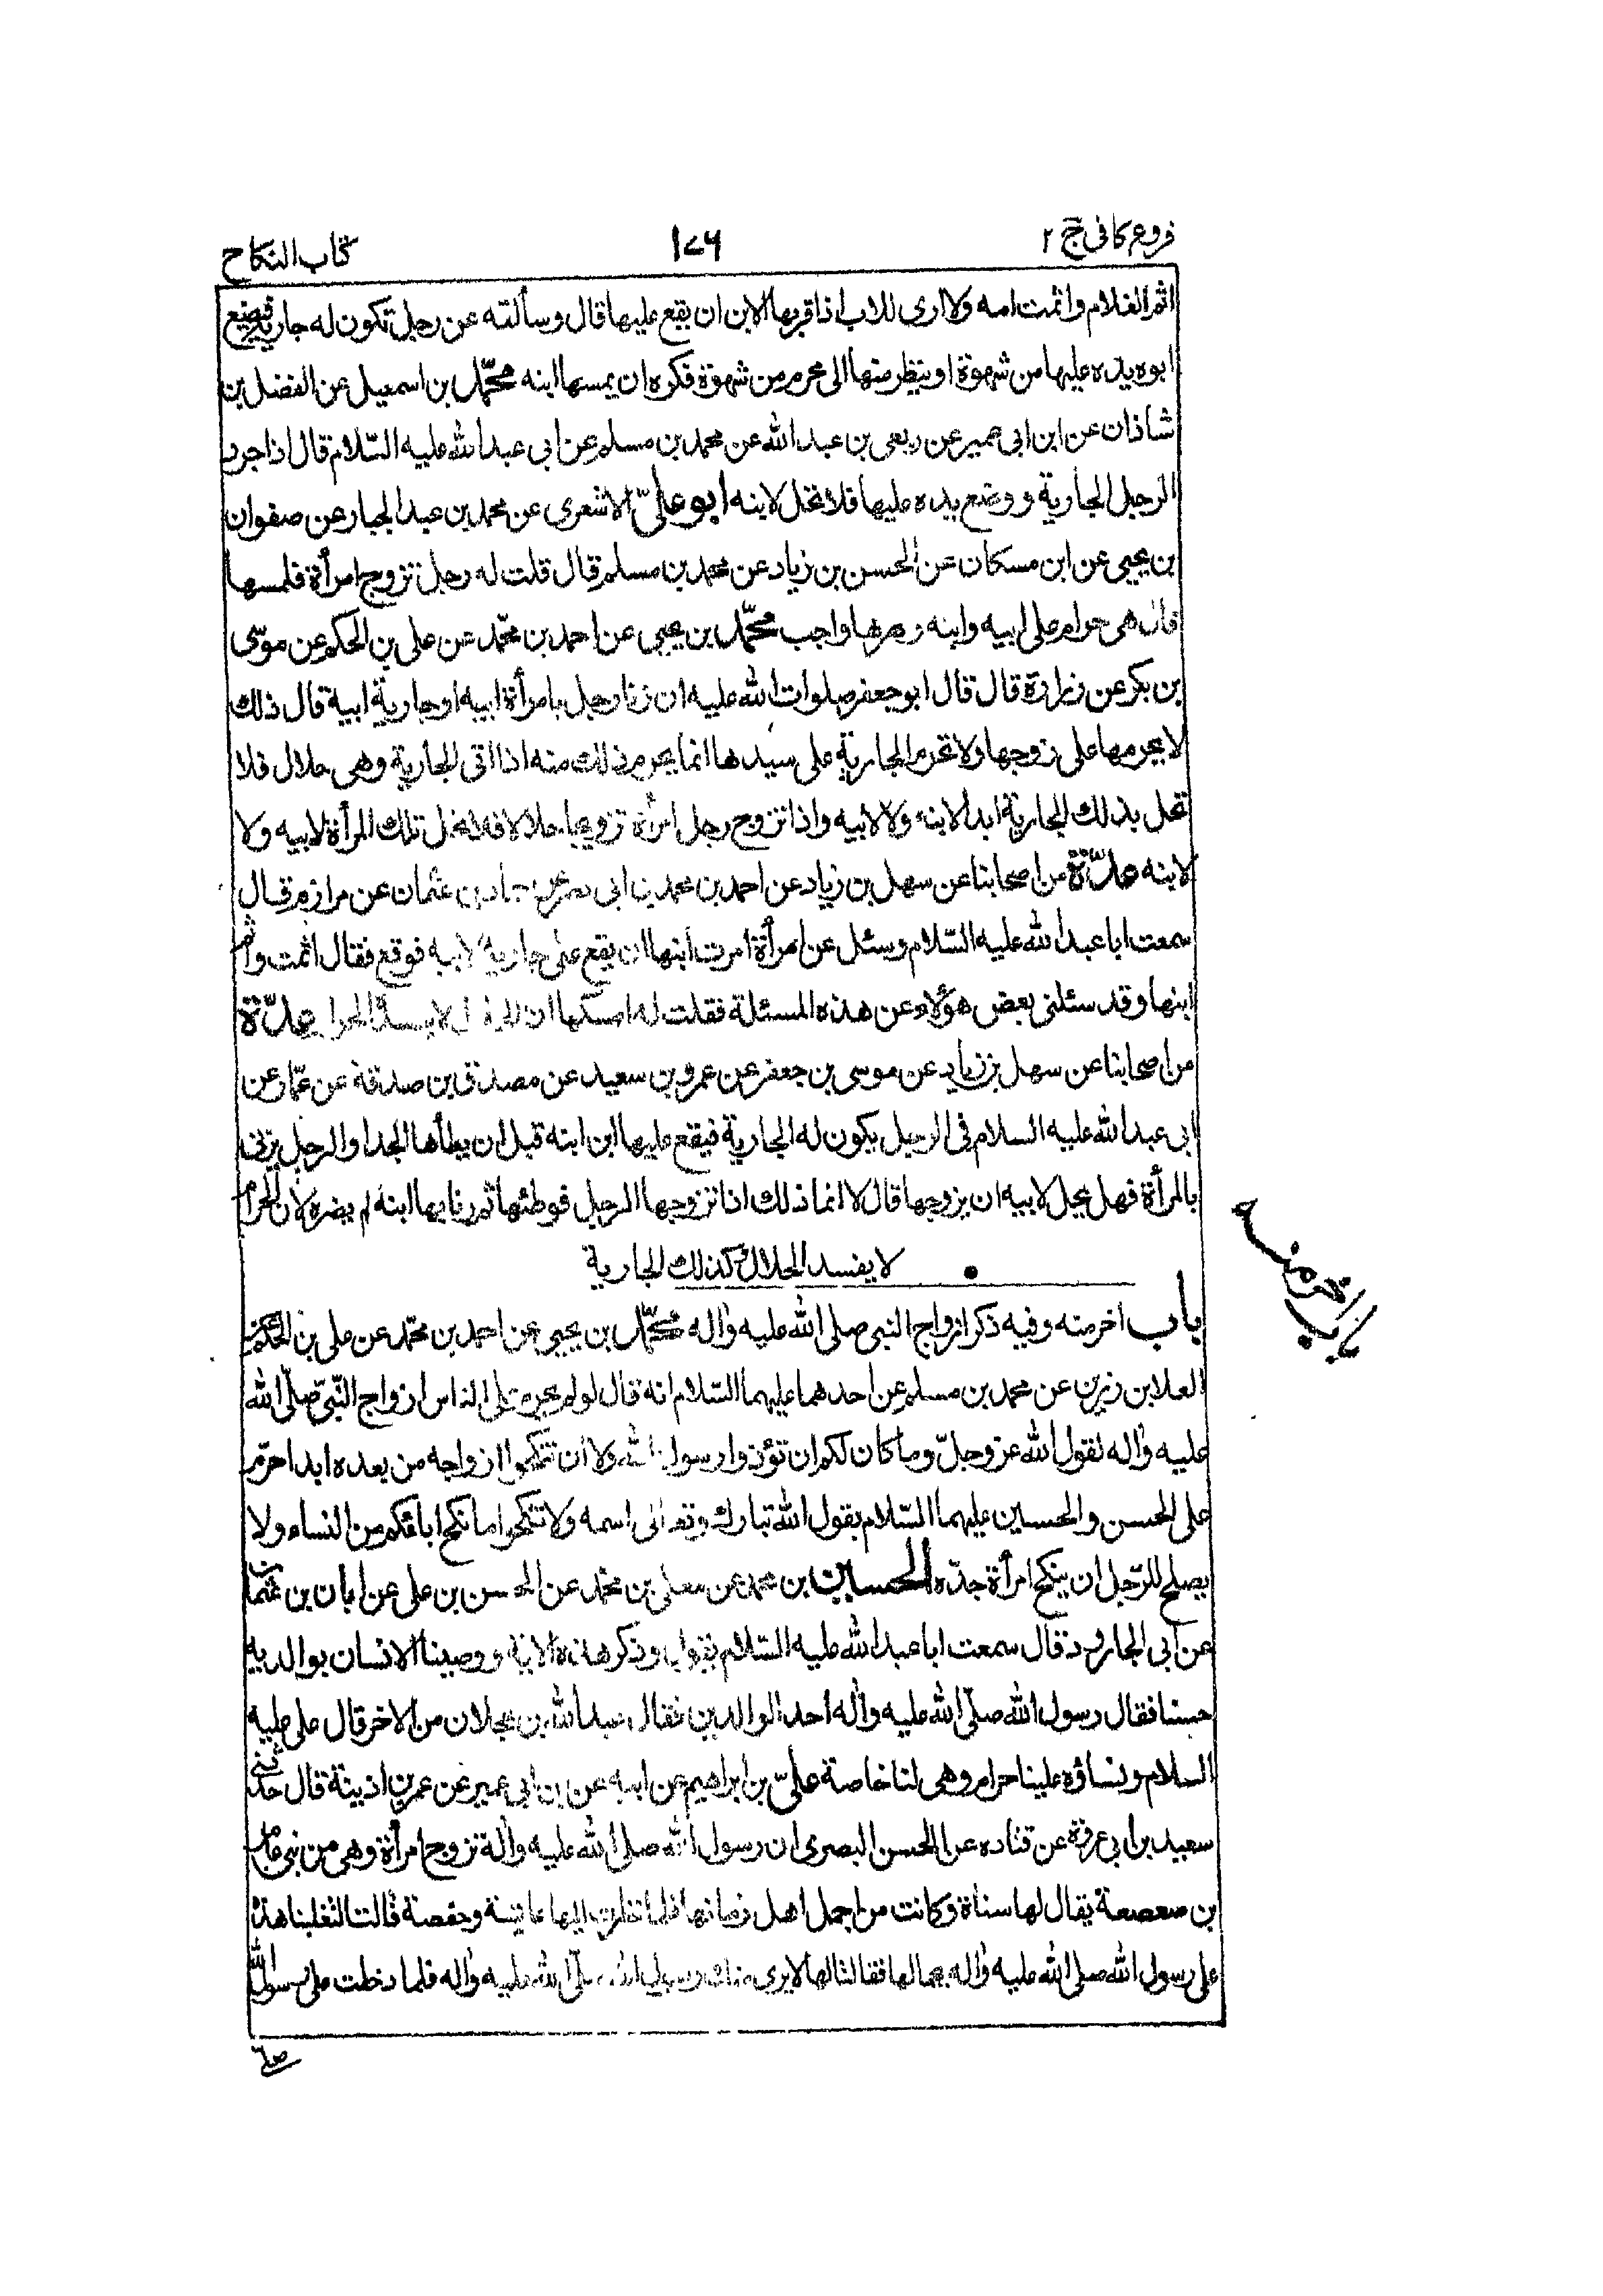 فروع كافى ج ٢
١٧٦
كتاب النكاح
اثم الغلام واثمت امه ولا ارى للاب اذا قربها الابن ان يقع عليها قال وسألته عن رجل تكون له جارية فيضع
ابوه يده عليها من شهوة او ينظر منها الى محرم من شهوة فكره ان يمسها ابنه محمّد بن اسمعيل عن الفضل بن
شاذان عن ابن ابى عمير عن ربعى بن عبد الله عن محمد بن مسلم عن ابى عبد الله عليه السّلام قال اذا جرد
الرجل الجارية ووضع يده عليها فلا تحل لابنه ابو علىّ الاشعرى عن محمد بن عبد الجبار عن صفوان
بن يحيى عن ابن مسكان عن الحسن بن زياد عن محمد بن مسلم قال قلت له رجل تزوج امرأة فلمسها
قال هى حرام على ابيه وابنه ومهرها واجب محمّد بن يحيى عن احمد بن محمّد عن على بن الحكم عن موسى
بن بكر عن زرارة قال قال ابو جعفر صلوات الله عليه ان زنا رجل بامرأة ابيه او جارية ابية قال ذلك
لا يحرمها على زوجها ولا تحرم الجارية على سيدها انما يحرم ذلك منه اذا اتى الجارية وهى حلال فلا
تحل بذلك الجارية ابدا لابنه ولا لابيه واذا تزوج رجل امرأة تزويجا حلالا فلا تحل تلك المرأة لابيه ولا
لابنه عدّة من اصحابنا عن سهل بن زياد عن احمد بن محمد بن ابى نصر عن حماد بن عثمان عن مرازم قال
سمعت ابا عبد الله عليه السّلام وسئل عن امرأة امرت ابنها ان يقع على جارية لابيه فوقع فقال اثمت واثم
ابنها وقد سئلنى بعض هؤلاء عن هذه المسئلة فقلت له امسكها ان الحلال لا يفسده الحرام عدّة
من اصحابنا عن سهل بن زياد عن موسى بن جعفر عن عمرو بن سعيد عن مصدق بن صدقة عن عمّار عن
ابى عبد الله عليه السلام فى الرجل يكون له الجارية فيقع عليها ابن ابنه قبل ان يطأها الجد او الرجل يزنى
بالمرأة فهل يحل لابيه ان يزوجها قال لا انما ذلك اذا تزوجها الرجل فوطئها ثم زنا بها ابنه لم يضره لان الحرام
لا يفسد الحلال كذلك الجارية
باب اخر منه
باب اخر منه وفيه ذكر ازواج النبى صلى الله عليه واله محمّد بن يحيى عن احمد بن محمّد عن على بن الحكم عن
العلا بن زرين عن محمد بن مسلم عن احدهما عليهما السّلام انه قال لو لم يحرم على الناس ازواج النّبىّ صلّى الله
عليه واله لقول الله عز وجلّ وما كان لكم ان تؤذوا رسول الله ولا ان تنكحوا ازواجه من بعده ابدا حرّم
على الحسن والحسين عليهما السّلام بقول الله تبارك وتعالى اسمه ولا تنكحوا ما نكح اباؤكم من النساء ولا
يصلح للرّجل ان ينكح امرأة جدّه الحسين بن محمد عن معلى بن محمّد عن الحسن بن على عن ابان بن عثمان
عن ابى الجارود قال سمعت ابا عبد الله عليه السّلام يقول وذكر هذه الاية ووصينا الانسان بوالديه
حسنا فقال رسول الله صلّى الله عليه واله احد الوالدين فقال عبد الله بن عجلان من الاخر قال على عليه
السلام ونساؤه علينا حرام وهى لنا خاصة علىّ بن ابراهيم عن ابيه عن بن ابى عمير عن عمر بن اذينة قال حدثنى
سعيد بن ابى عروة عن قتاده عن الحسن البصرى ان رسول الله صلى الله عليه واله تزوج امرأة وهى من بنى عامر
بن صعصعة يقال لها سناة وكانت من اجمل اهل زمانها فلما نظرت اليها عايشة وحفصة قالت التغلبنا هذه
على رسول الله صلى الله عليه واله بجمالها فقالتا لها لا يرى منك رسول الله صلّى الله عليه واله فلما دخلت على رسول الله
صلى